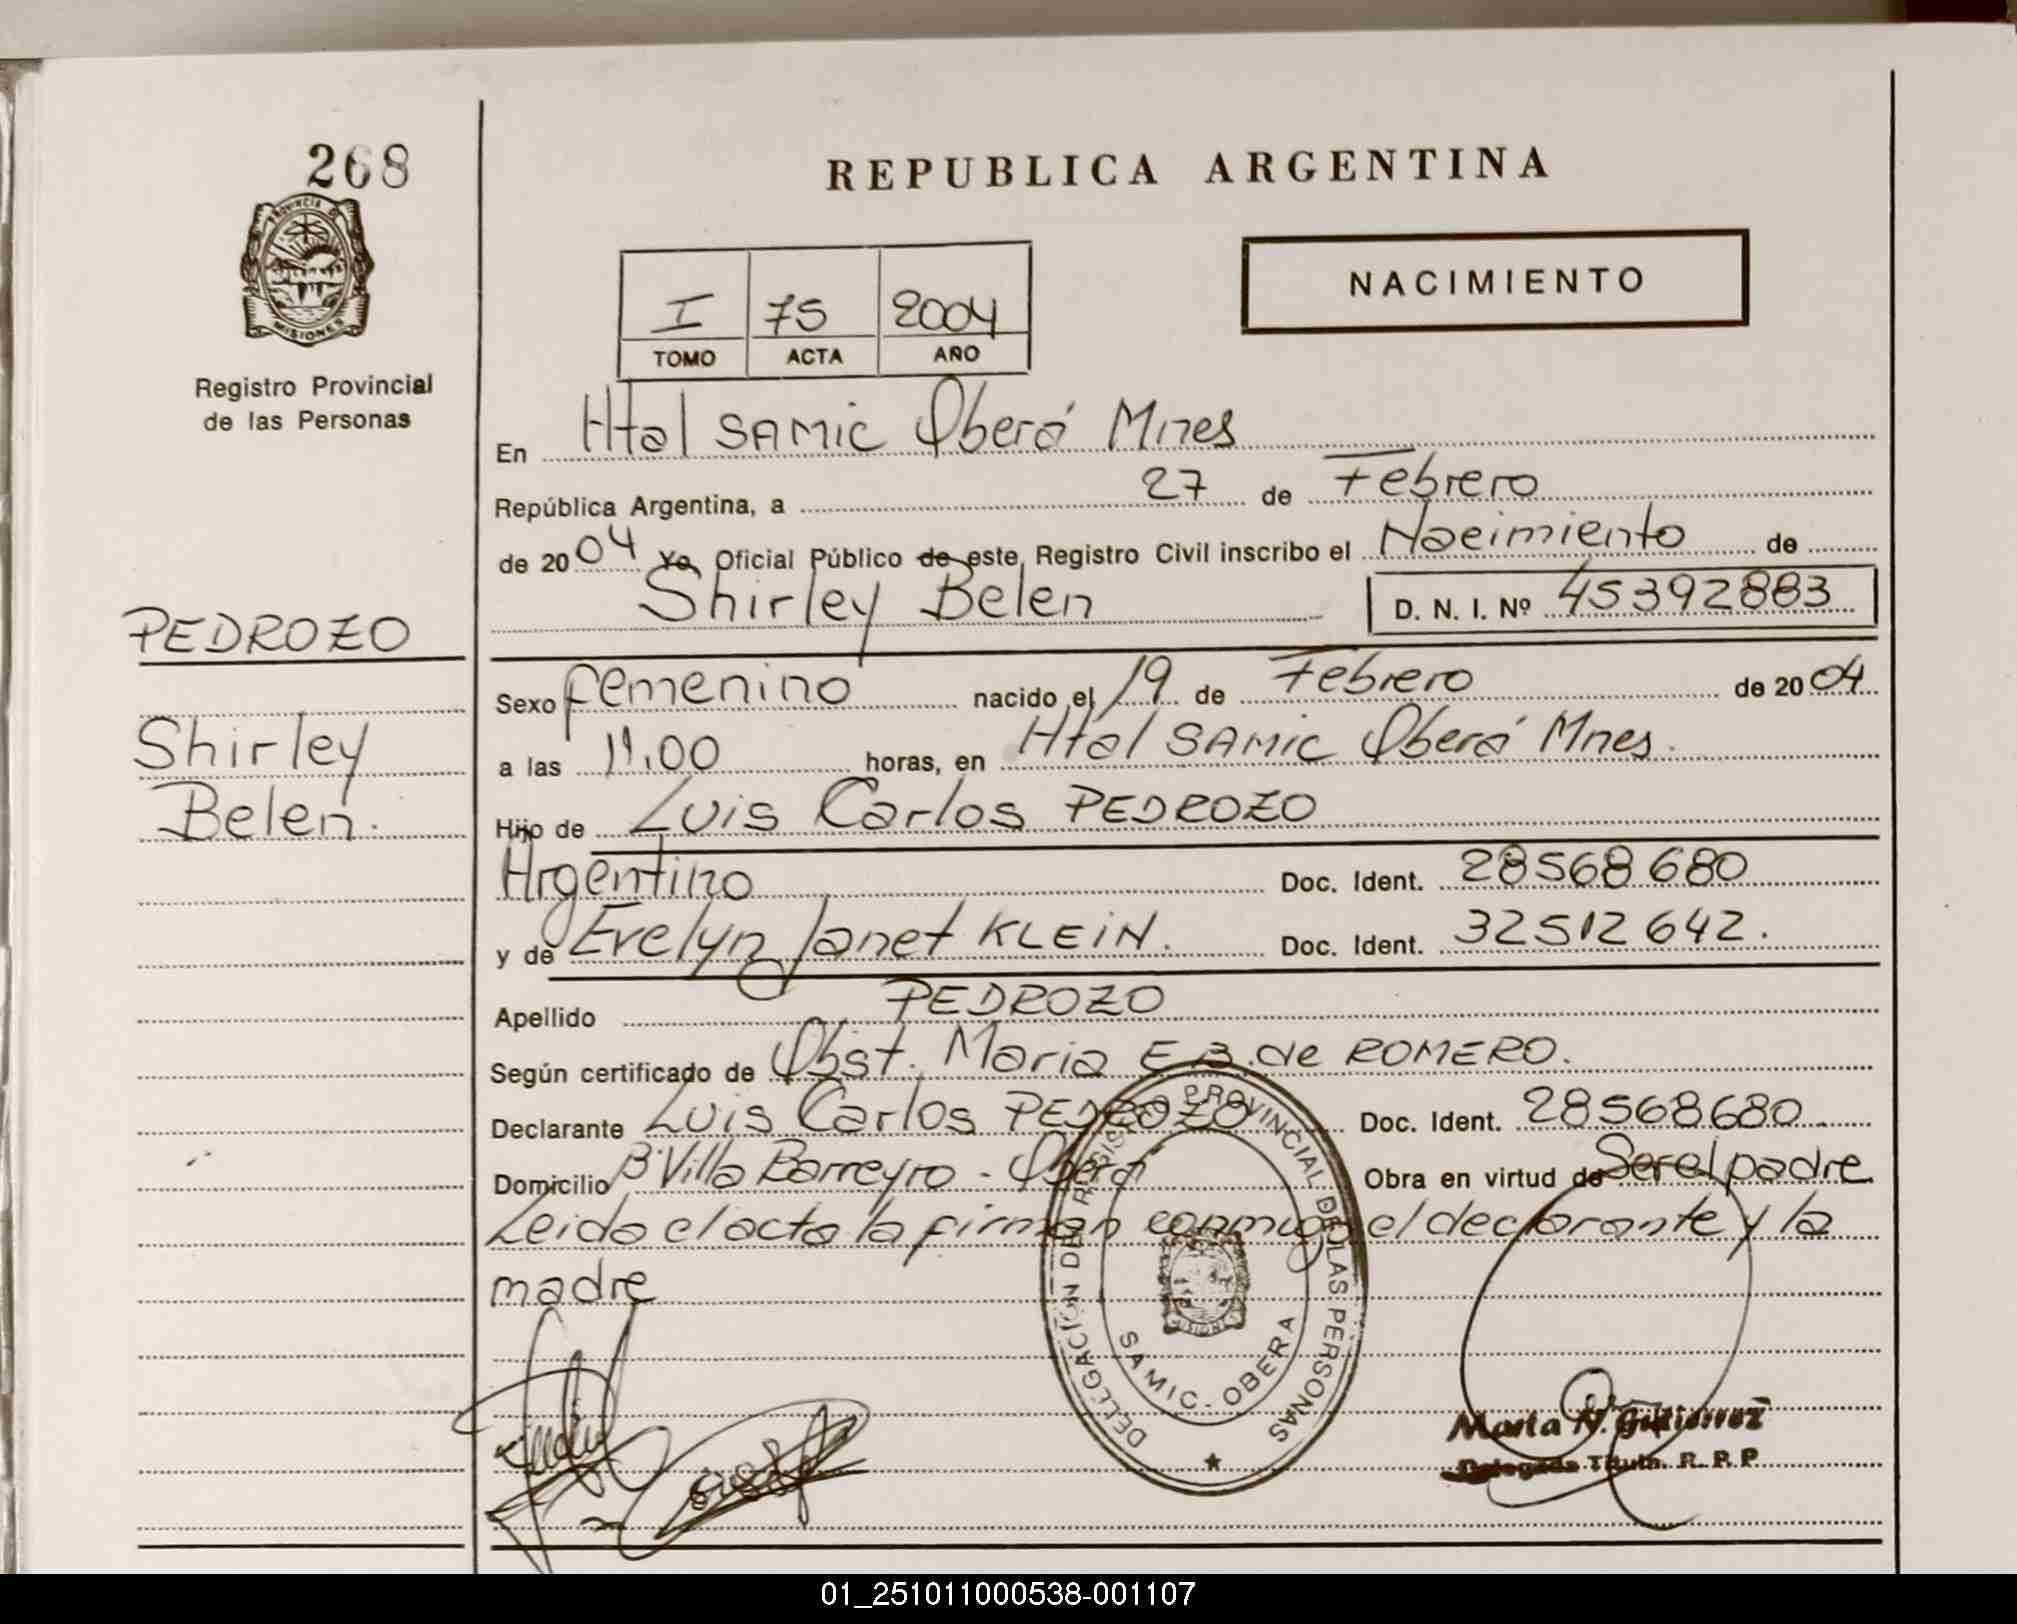 268
PROVINCIA DE
MISIONES
Registro Provincial
de las Personas
PEDROZO
Shirley
Belen.
REPUBLICA ARGENTINA
NACIMIENTO
I 75 2004
TOMO ACTA AÑO
En Htal SAMIC Oberá Mnes
República Argentina, a 27 de Febrero
de 2004 Yo, Oficial Público de este, Registro Civil inscribo el Nacimiento de
Shirley Belen D. N. I. Nº 45392883
Sexo femenino nacido el 19 de Febrero de 2004
a las 11.00 horas, en Htal SAMIC Oberá Mnes.
Hijo de Luis Carlos PEDROZO
Argentino Doc. Ident. 28568680
y de Evelyn Janet KLEIN. Doc. Ident. 32512642.
Apellido PEDROZO
Según certificado de Obst. Maria E B. de ROMERO.
Declarante Luis Carlos PEDROZO Doc. Ident. 28568680
Domicilio Bº Villa Barreyro - Oberá Obra en virtud de Ser el padre
Leida el acta la firman conmigo el declarante y la
madre
DELEGACION DEL REGISTRO PROVINCIAL DE LAS PERSONAS
SAMIC - OBERA
MISIONES
Marta N. Gutierrez
Delegada Titula. R. P. P.
01_251011000538-001107